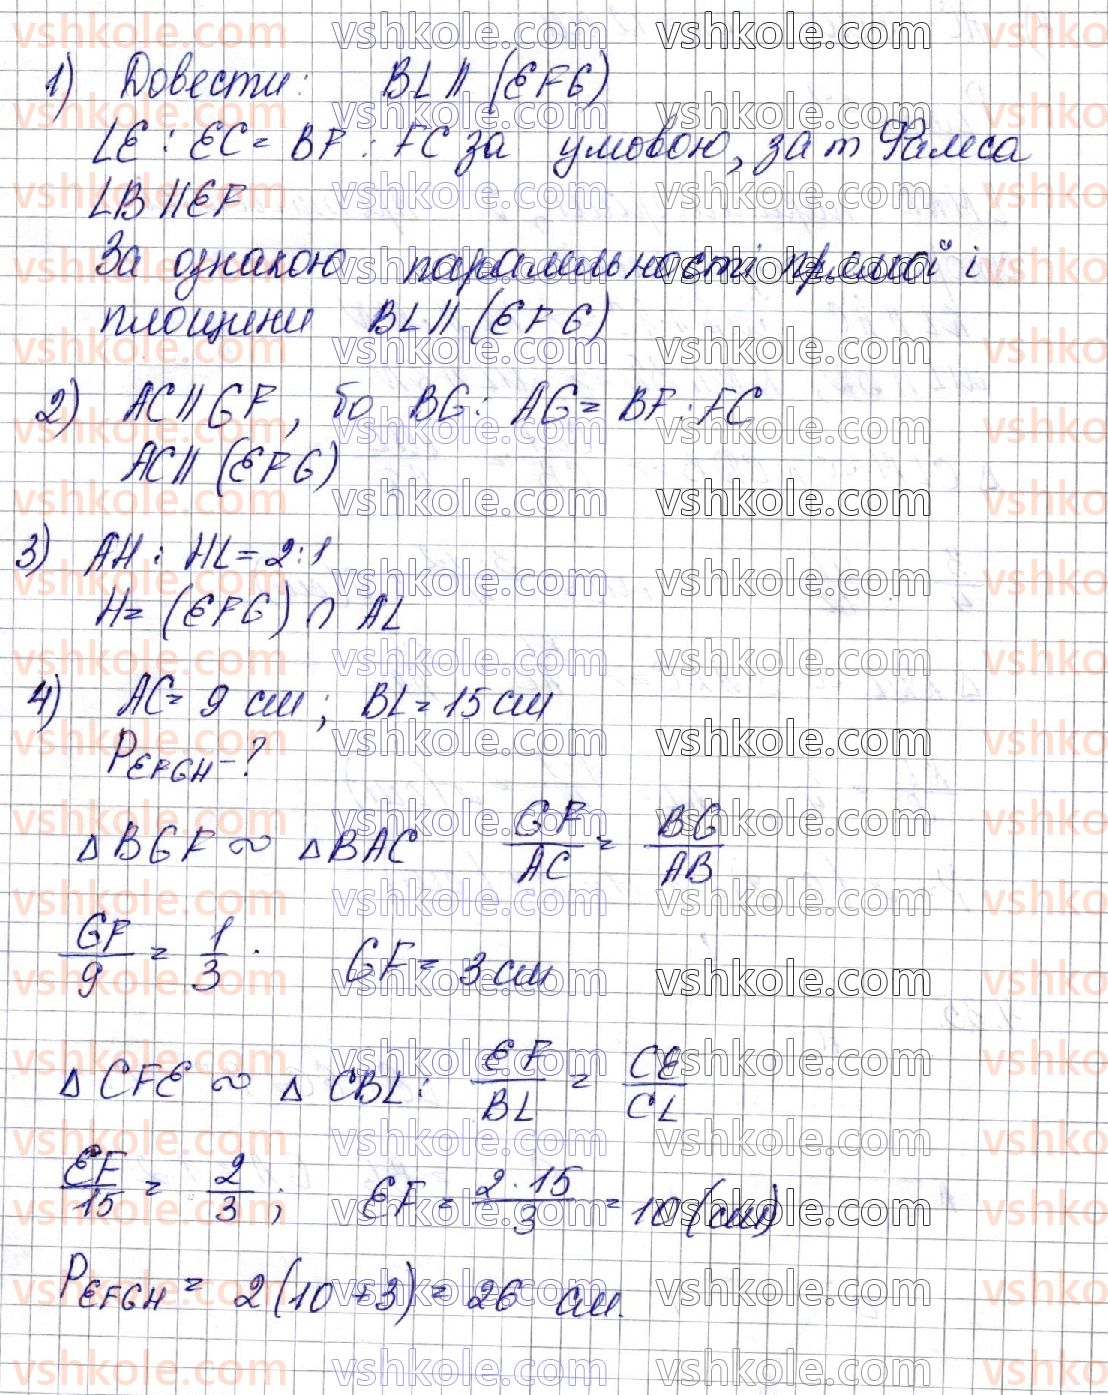 1) Довести: BL || (EFG)
LE : EC = BF : FC за умовою, за т Фалеса
LB || EF
За ознакою паралельності прямої і
площини BL || (EFG)
2) AC || GF, бо BG : AG = BF : FC
AC || (EFG)
3) AH : HL = 2 : 1
H = (EFG) ∩ AL
4) AC = 9 см ; BL = 15 см
P_EFGH - ?
△ BGF ∾ △ BAC GF/AC = BG/AB
GF/9 = 1/3 . GF = 3 см
△ CFE ∾ △ CBL : EF/BL = CE/CL
EF/15 = 2/3 ; EF = 2·15/3 = 10 (см)
P_EFGH = 2 (10 + 3) = 26 см.
vshkole.com